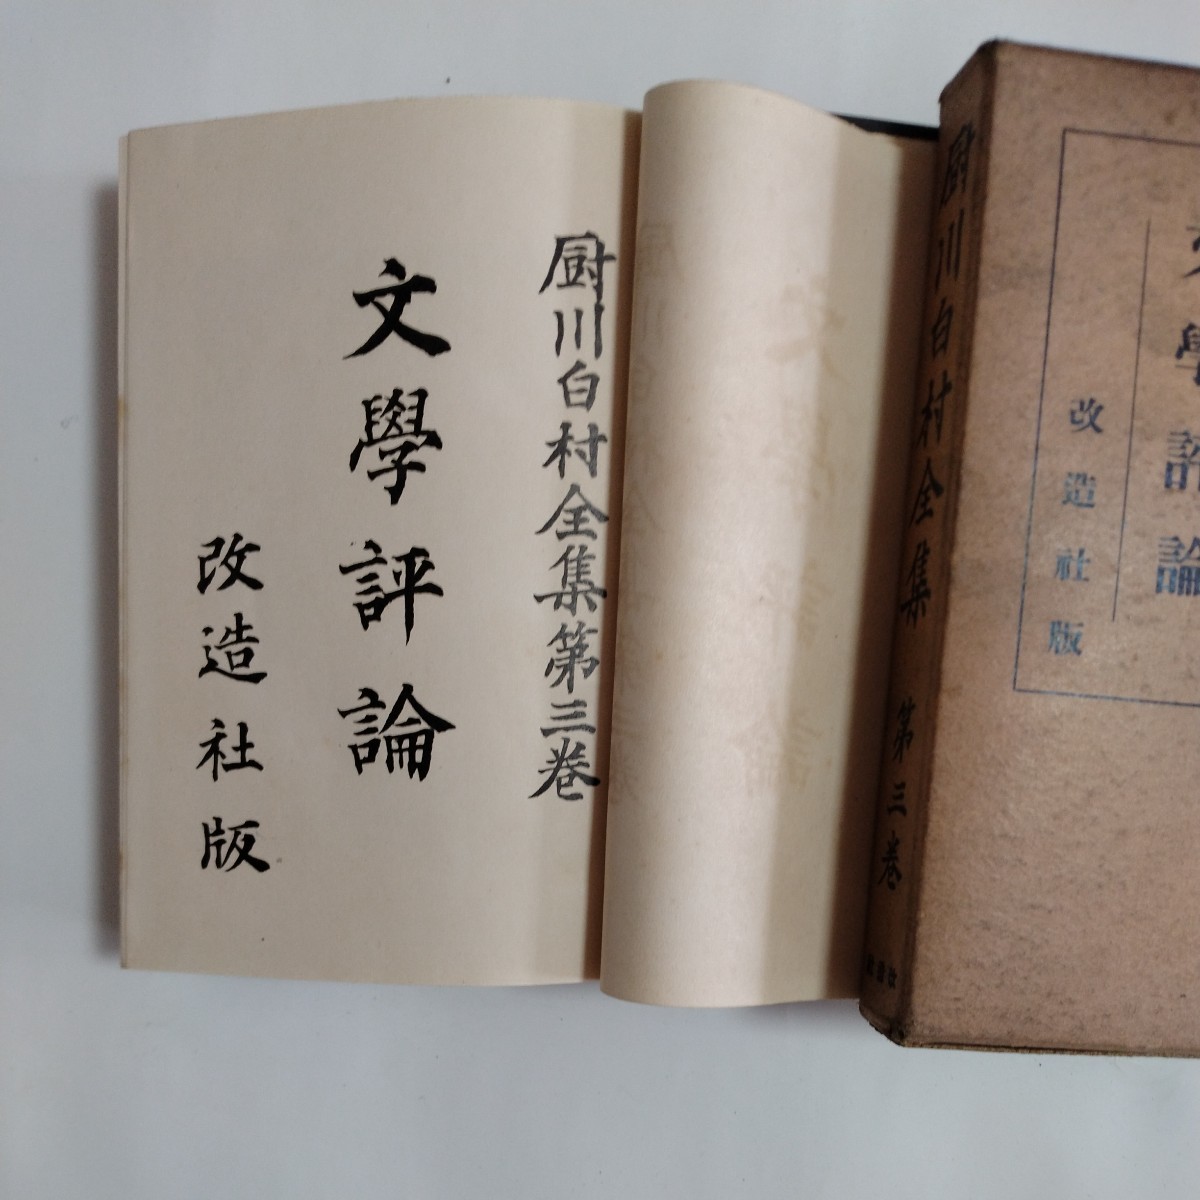 厨川白村全集第三巻
文學評論
改造社版
厨川白村全集 第三巻
文學評論
改造社版